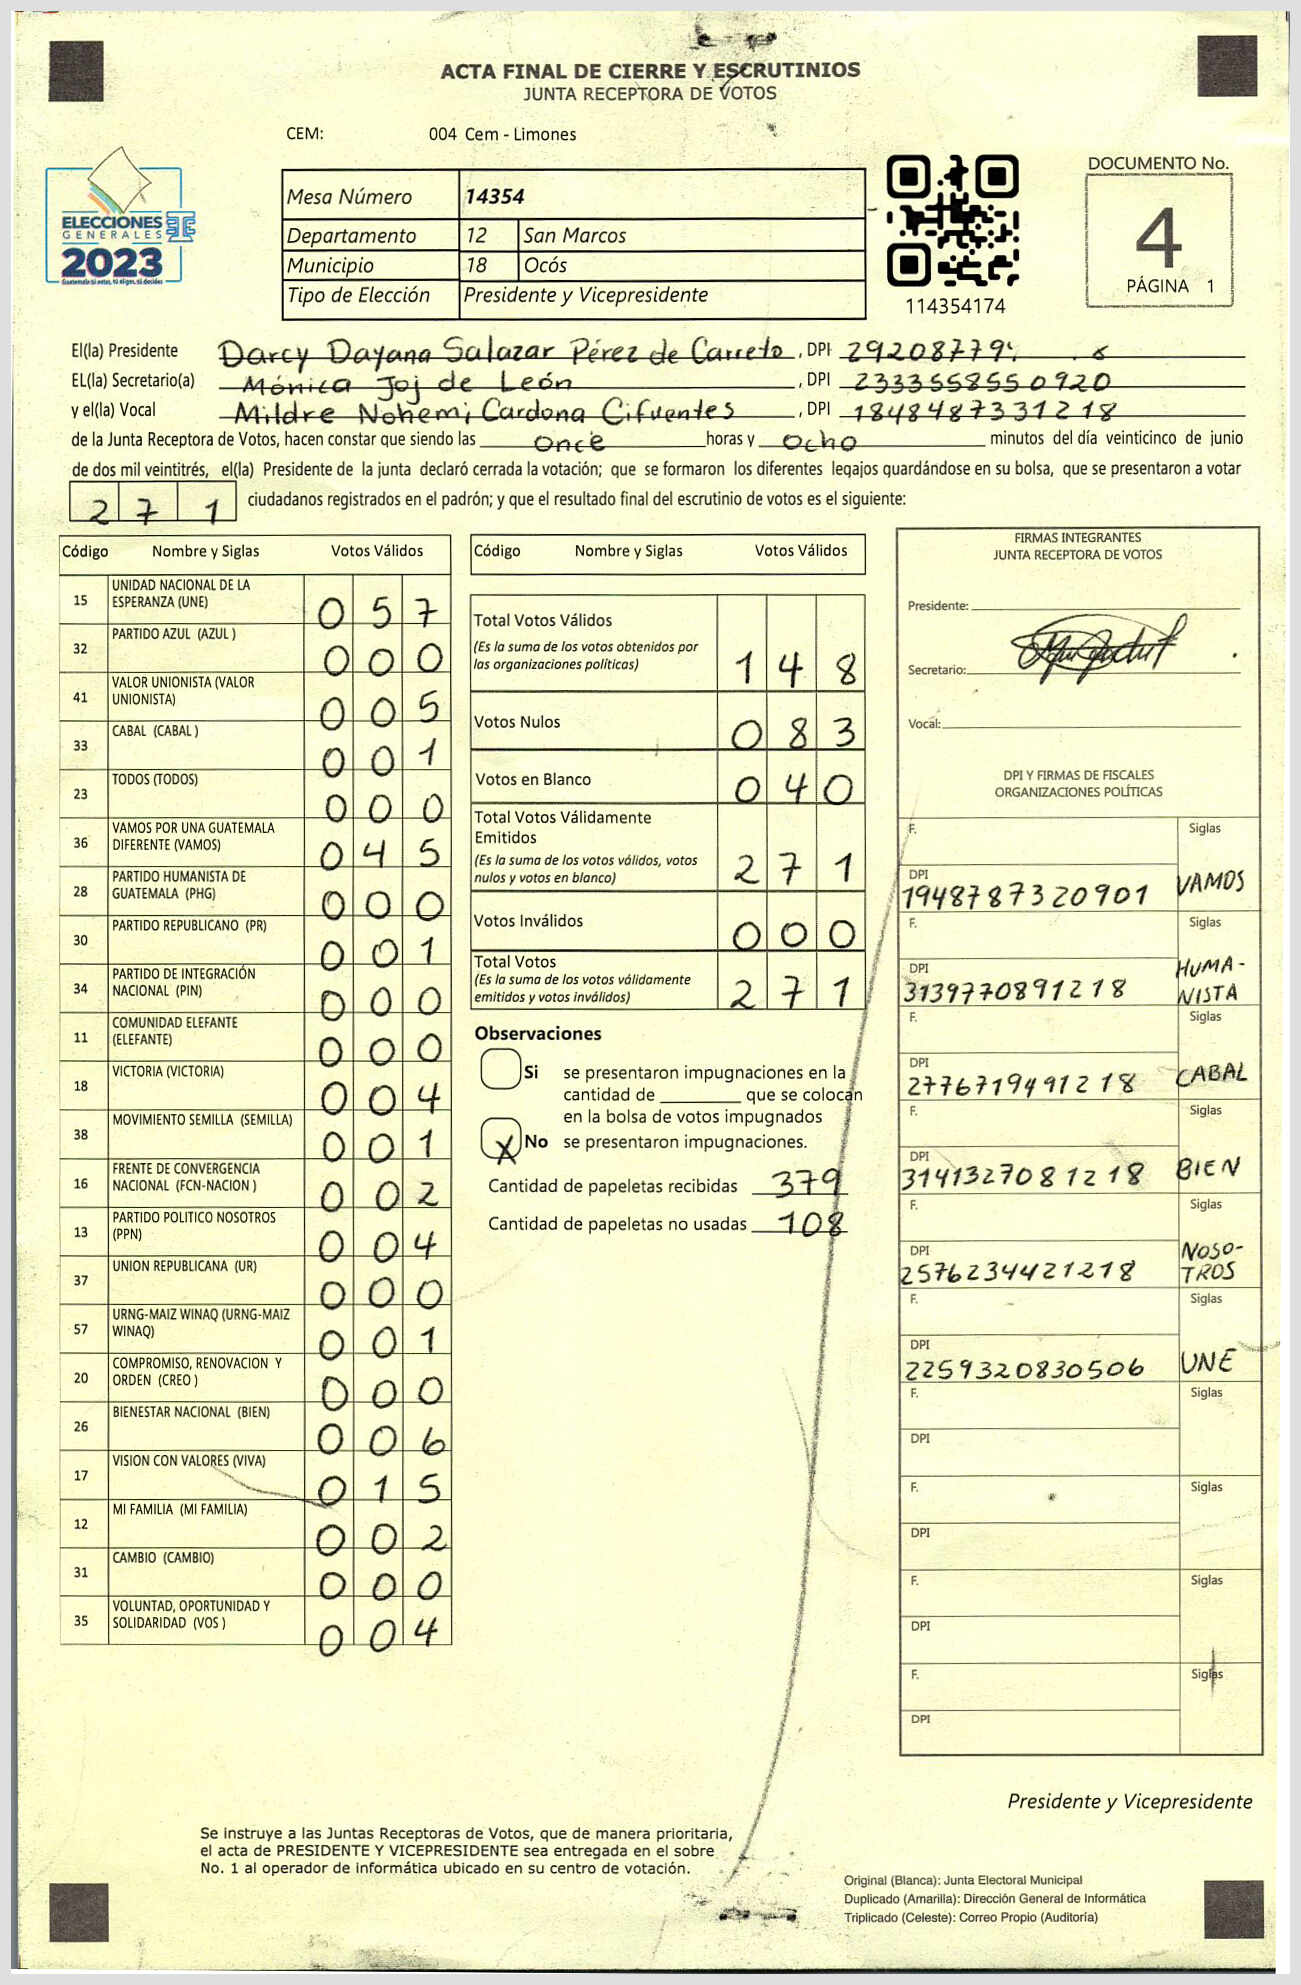 ACTA FINAL DE CIERRE Y ESCRUTINIOS
JUNTA RECEPTORA DE VOTOS
CEM: 004 Cem - Limones
ELECCIONES
GENERALES
2023
Guatemala tú votas, tú eliges, tú decides
Mesa Número 14354
Departamento 12 San Marcos
Municipio 18 Ocós
Tipo de Elección Presidente y Vicepresidente
114354174
DOCUMENTO No.
4
PÁGINA 1
El(la) Presidente Darcy Dayana Salazar Pérez de Carreto, DPI 29208779
EL(la) Secretario(a) Mónica Joj de León, DPI 2333558550920
y el(la) Vocal Mildre Nohemi Cardona Cifuentes, DPI 1848487331218
de la Junta Receptora de Votos, hacen constar que siendo las once horas y ocho minutos del día veinticinco de junio
de dos mil veintitrés, el(la) Presidente de la junta declaró cerrada la votación; que se formaron los diferentes legajos guardándose en su bolsa, que se presentaron a votar
271 ciudadanos registrados en el padrón; y que el resultado final del escrutinio de votos es el siguiente:
Código Nombre y Siglas Votos Válidos
15 UNIDAD NACIONAL DE LA
ESPERANZA (UNE) 057
32 PARTIDO AZUL (AZUL ) 000
41 VALOR UNIONISTA (VALOR
UNIONISTA) 005
33 CABAL (CABAL ) 001
23 TODOS (TODOS) 000
36 VAMOS POR UNA GUATEMALA
DIFERENTE (VAMOS) 045
28 PARTIDO HUMANISTA DE
GUATEMALA (PHG) 000
30 PARTIDO REPUBLICANO (PR) 001
34 PARTIDO DE INTEGRACIÓN
NACIONAL (PIN) 000
11 COMUNIDAD ELEFANTE
(ELEFANTE) 000
18 VICTORIA (VICTORIA) 004
38 MOVIMIENTO SEMILLA (SEMILLA) 001
16 FRENTE DE CONVERGENCIA
NACIONAL (FCN-NACION ) 002
13 PARTIDO POLITICO NOSOTROS
(PPN) 004
37 UNION REPUBLICANA (UR) 000
57 URNG-MAIZ WINAQ (URNG-MAIZ
WINAQ) 001
20 COMPROMISO, RENOVACION Y
ORDEN (CREO ) 000
26 BIENESTAR NACIONAL (BIEN) 006
17 VISION CON VALORES (VIVA) 015
12 MI FAMILIA (MI FAMILIA) 002
31 CAMBIO (CAMBIO) 000
35 VOLUNTAD, OPORTUNIDAD Y
SOLIDARIDAD (VOS ) 004
Código Nombre y Siglas Votos Válidos
Total Votos Válidos
(Es la suma de los votos obtenidos por
las organizaciones políticas) 148
Votos Nulos 083
Votos en Blanco 040
Total Votos Válidamente
Emitidos
(Es la suma de los votos válidos, votos
nulos y votos en blanco) 271
Votos Inválidos 000
Total Votos
(Es la suma de los votos válidamente
emitidos y votos inválidos) 271
Observaciones
Si se presentaron impugnaciones en la
cantidad de ________ que se colocan
en la bolsa de votos impugnados
X No se presentaron impugnaciones.
Cantidad de papeletas recibidas 379
Cantidad de papeletas no usadas 108
FIRMAS INTEGRANTES
JUNTA RECEPTORA DE VOTOS
Presidente:
Secretario:
Vocal:
DPI Y FIRMAS DE FISCALES
ORGANIZACIONES POLÍTICAS
F. Siglas
DPI
1948787320901 VAMOS
F. Siglas
DPI HUMA-
3139770891218 NISTA
F. Siglas
DPI
2776719491218 CABAL
F. Siglas
DPI
3141327081218 BIEN
F. Siglas
DPI NOSO-
2576234421218 TROS
F. Siglas
DPI
2259320830506 UNE
F. Siglas
DPI
F. Siglas
DPI
F. Siglas
DPI
F. Siglas
DPI
Presidente y Vicepresidente
Se instruye a las Juntas Receptoras de Votos, que de manera prioritaria,
el acta de PRESIDENTE Y VICEPRESIDENTE sea entregada en el sobre
No. 1 al operador de informática ubicado en su centro de votación.
Original (Blanca): Junta Electoral Municipal
Duplicado (Amarilla): Dirección General de Informática
Triplicado (Celeste): Correo Propio (Auditoría)